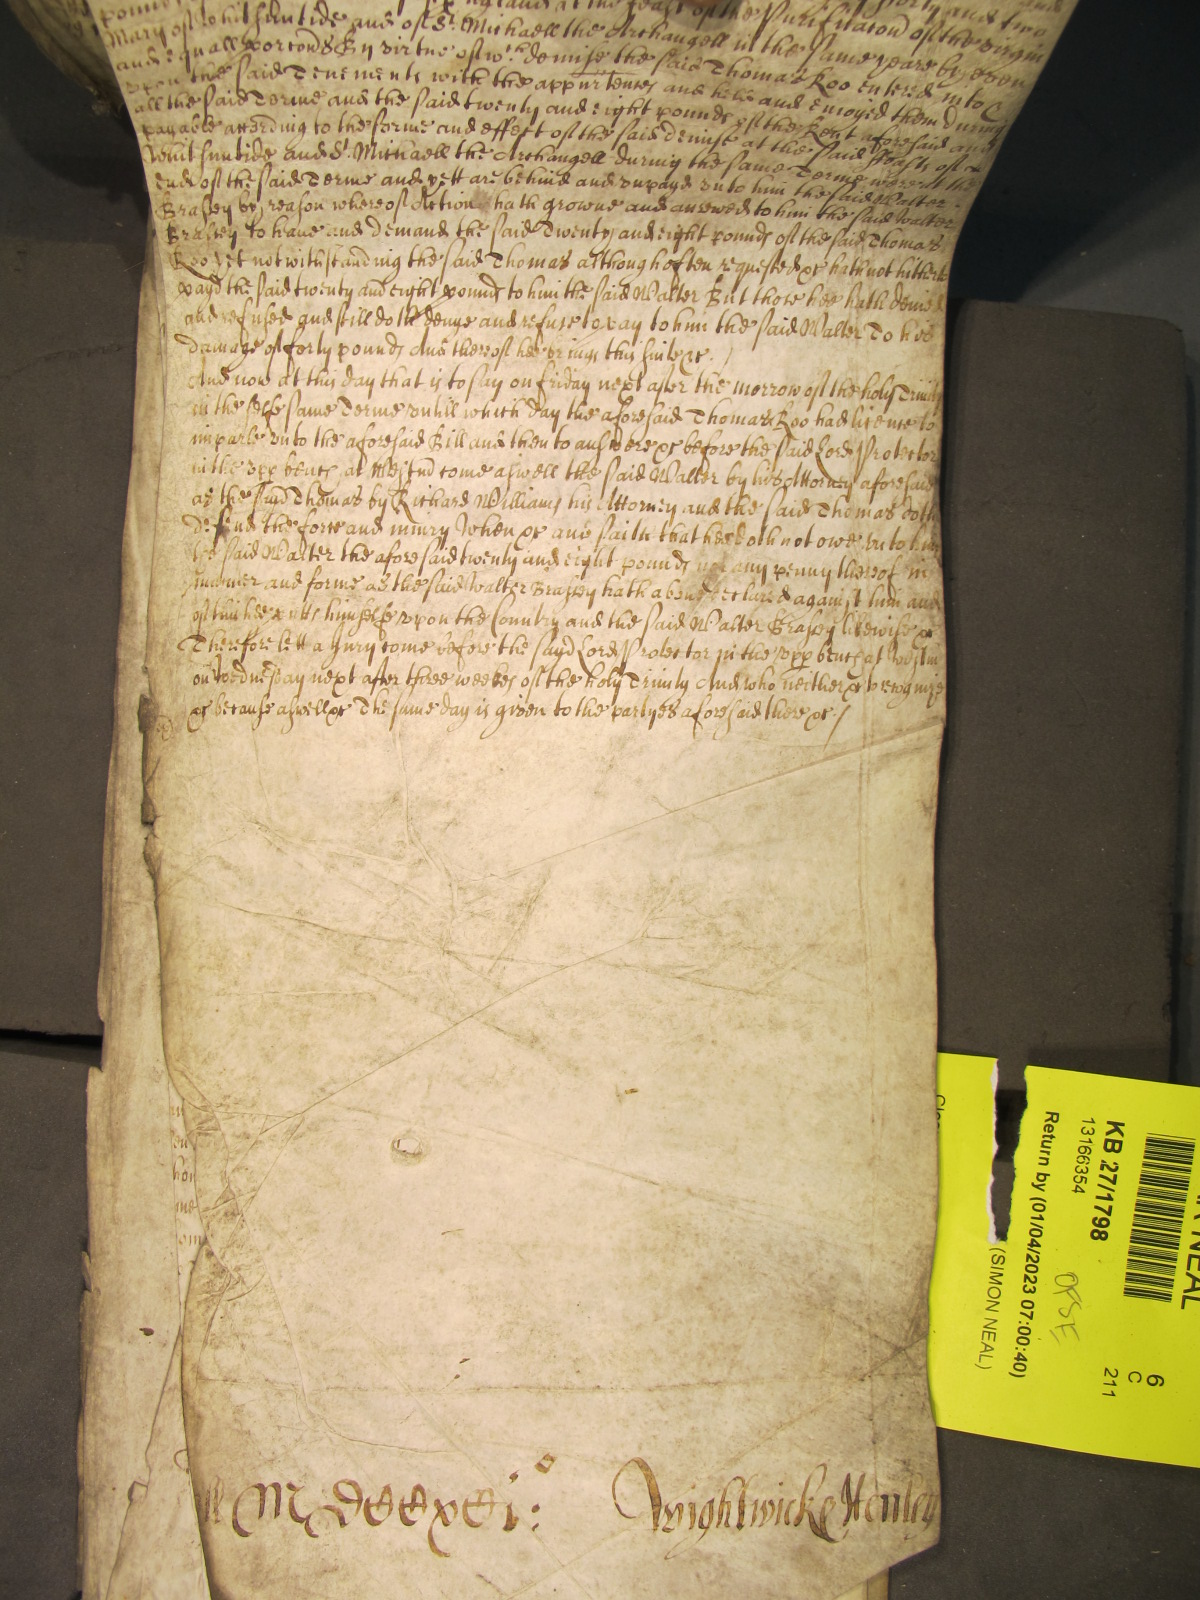 Mary of whitsuntide and of St. Michaell the Archangell in the same yeare by even
and equall porcons By virtue of wch. demise the said Thomas Roo entered into
upon the said Tenements with the appurtences and held and enioyed them during
all the said Terme and the said twenty and eight pounds of the Rent aforesaid and
payable according to the forme and effect of the said demise at the said feasts of
whitsuntide and St. Michaell the Archangell during the same Terme were at the
end of the said Terme and yett are behind and unpayd unto him the said Walter
Brassey by reason whereof Action hath growne and accrewed to him the said Walter
Brassey to have and demand the said Twenty and eight pounds of the said Thomas
Roo yet notwithstanding the said Thomas although often requested &c hath not hitherto
payd the said twenty and eight pounds to him the said Walter But those hee hath denied
and refused and still doth denye and refuse to pay to him the said Walter To his
damage of forty pounds And thereof hee brings this suite &c. /
And now at this day that is to say on friday next after the morrow of the holy Trinity
in the selfe same Terme untill which day the aforesaid Thomas Roo had licence to
imparle unto the aforesaid Bill and then to answere &c before the said Lord Protector
in the upp bench at Westmr come aswell the said Walter by his Attorney aforesaid
as the said Thomas by Richard Williams his Attorney and the said Thomas doth
defend the force and iniury when &c and saith that hee doth not owe unto him
the said Walter the aforesaid twenty and eight pounds nor any penny thereof in
manner and forme as the said Walter Brassey hath above declared against him and
of this hee putts himselfe upon the Country and the said Walter Brassey likewise &c
Therefore lett a Jury come before the sayd Lord Protector in the upp bench at Westm
on wednesday next after three weekes of the holy Trinity And who neither &c to recognize
&c because aswell &c The same day is given to the partyes aforesaid there &c. /
Wightwicke Henley
KB 27/1798
13166354
Return by (01/04/2023 07:00:40)
(SIMON NEAL)
NEAL
6
C
211